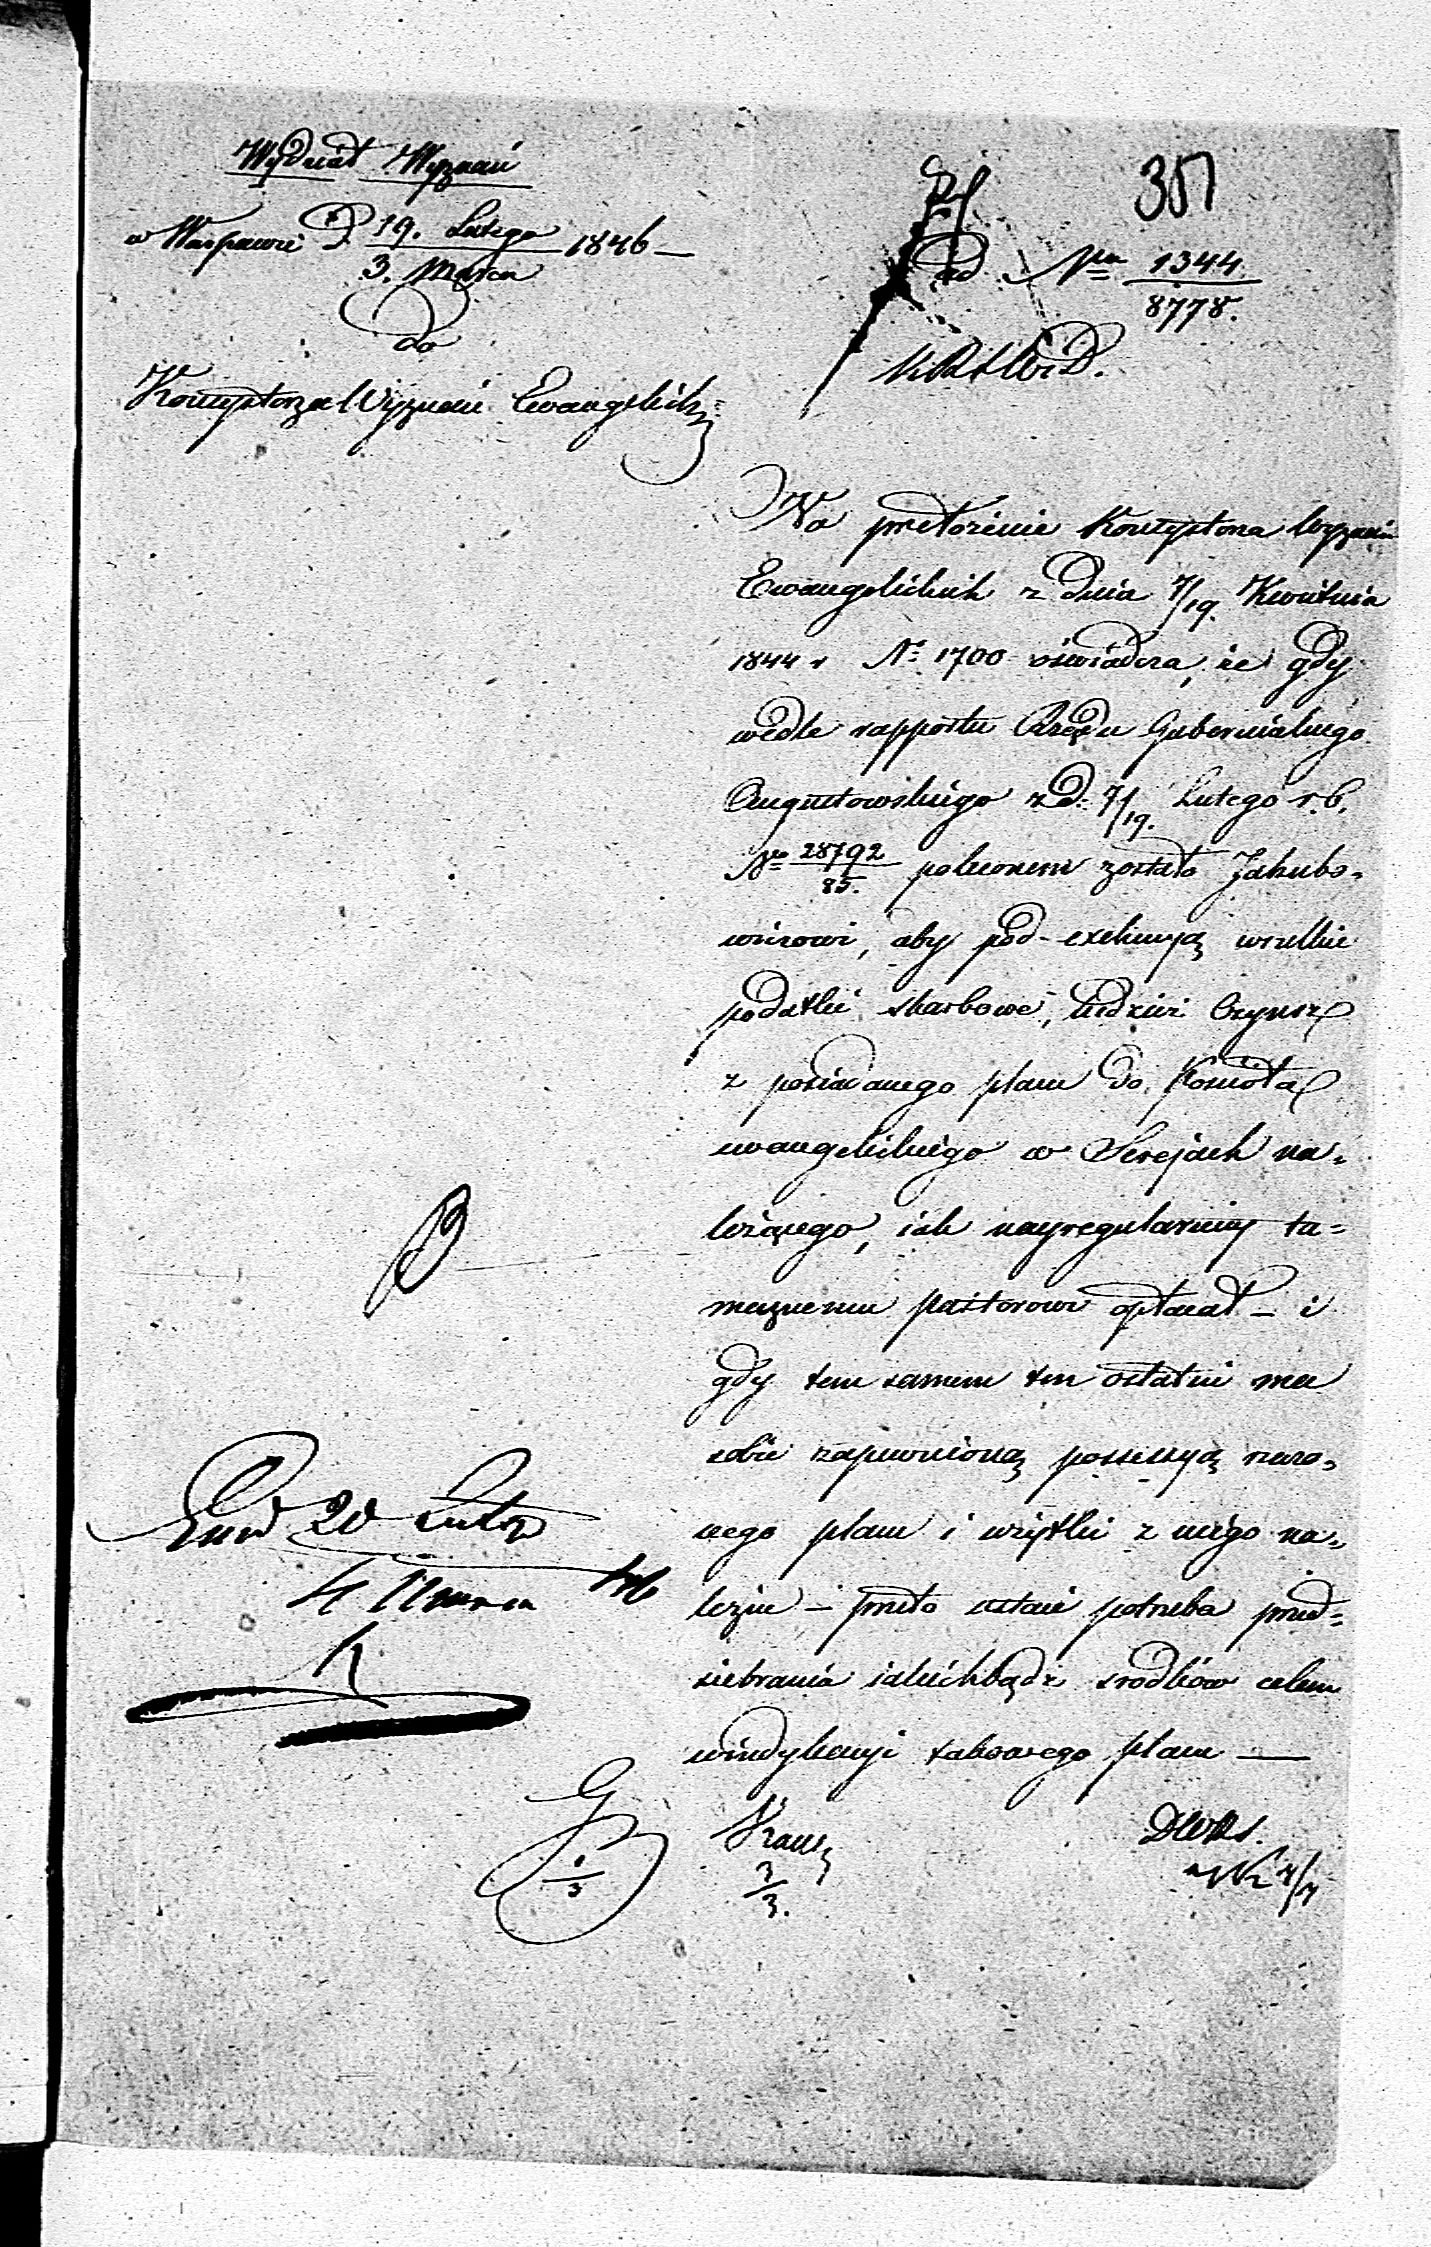 Wydział Wyznań
w Warszawie D. 19. Lutego 1846 —
3. Marca
do
Konsystorza Wyznań Ewangelick:
351
ad Nrm 1344
8778.
K.R.S.W.i D.
Na przełożenie Konsystorza Wyznań
Ewangelickich z dnia 7/19. Kwietnia
1844 r No 1700 oświadcza, że gdy
wedle rapportu Rządu Gubernialnego
Augustowskiego z d: 7/19. Lutego r.b.
No 28792
85. poleconem zostało Jakubo-
wiczowi, aby pod exekucyą wszelkie
podatki skarbowe, tudzież Czynsz
z posiadanego placu do Kościoła
ewangelickiego w Serejach na-
leżącego, jak nayregularniey ta-
meznemu pastorowi opłacał — i
gdy tem samem ten ostatni ma
sobie zapewnioną possessyą rzeczo-
nego placu i wszystkie z niego na-
leżne — przeto ustaie potrzeba przed-
siebrania iakichbądź srodków celem
windykacyi takowego placu —
20 Lutego
4 Marca 46
3
3.